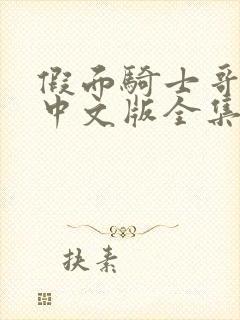 假面騎士哥
中文版全集
扶素